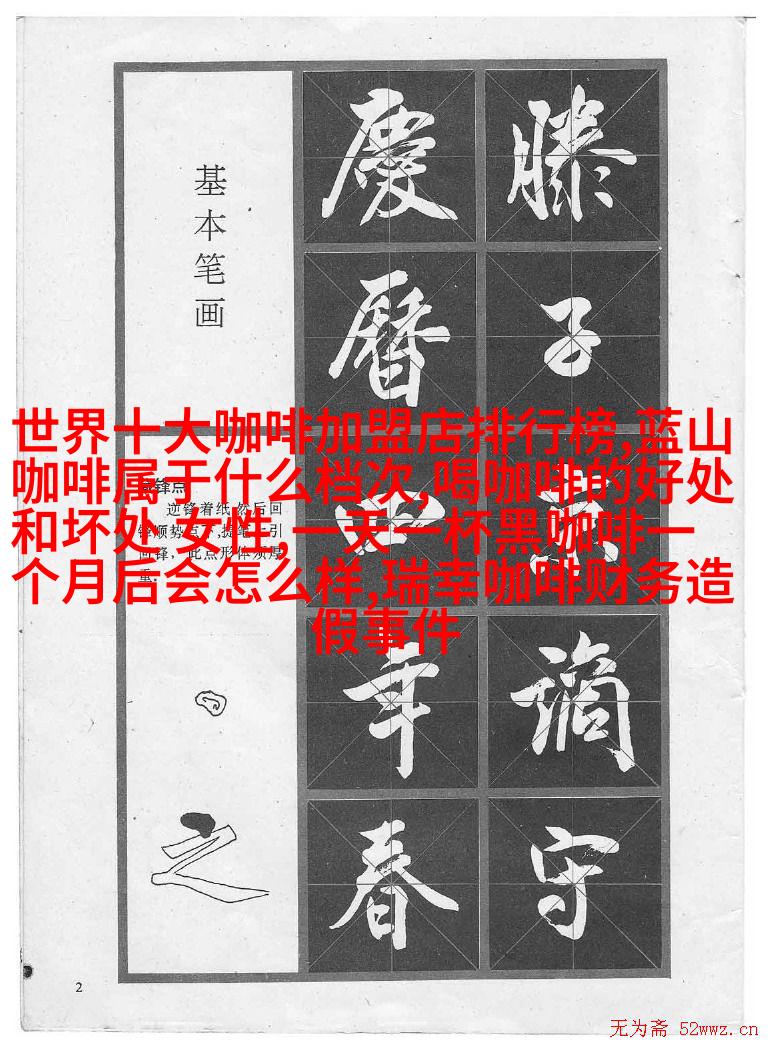 基本笔画
锋点
逆锋着纸,然后回
锋顺势下,提笔引
回锋,此点形体须厚
重.
慶曆四年春
滕子京谪守
世界十大咖啡加盟店排行榜,蓝山
咖啡属于什么档次,喝咖啡的好处
和坏处 女性,一天一杯黑咖啡一
个月后会怎么样,瑞幸咖啡财务造
假事件
2
无为斋 52wwz.cn